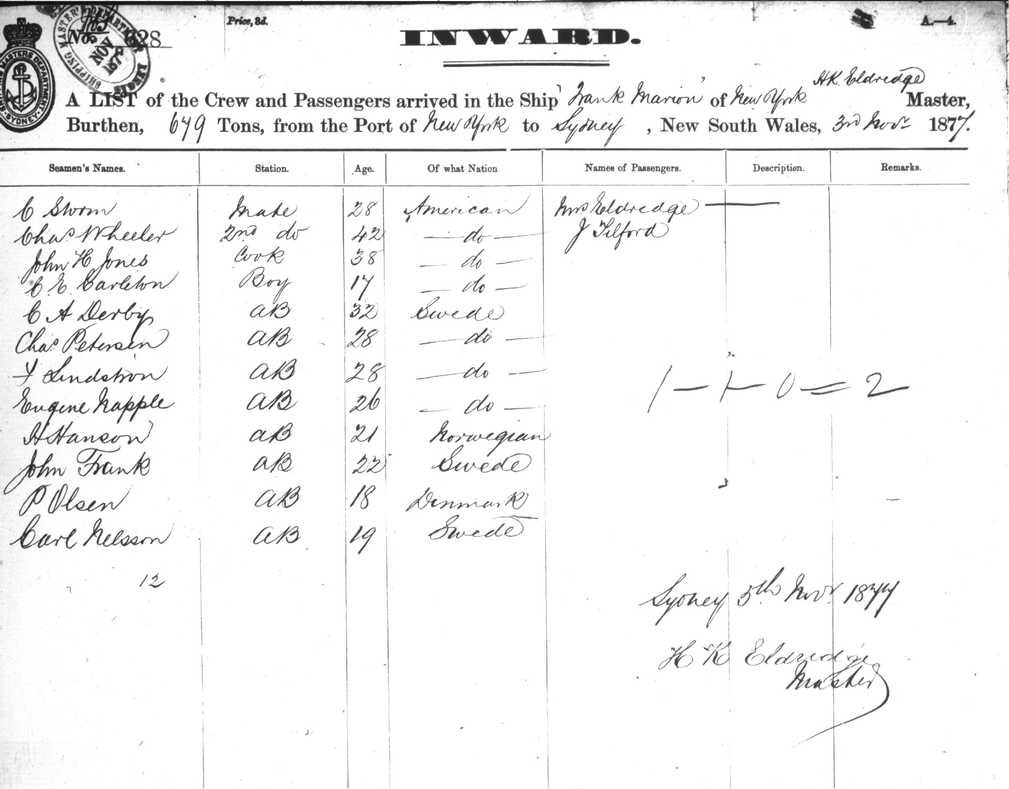 Price, 3d.
A.—4.
No. 628
SHIPPING MASTER'S DEPARTMENT
NOV
SYDNEY
INWARD.
H K Eldredge
A LIST of the Crew and Passengers arrived in the Ship "Frank Marion" of New York Master,
Burthen, 649 Tons, from the Port of New York to Sydney, New South Wales, 3rd Novr 1877.
Seamen's Names. Station. Age. Of what Nation Names of Passengers. Description. Remarks.
C Storm Mate 28 American Mrs Eldredge —
Chas Wheeler 2nd do 42 — do — J Tilford
John H Jones Cook 38 — do —
C. E. Carleton Boy 17 — do —
C A Derby AB 32 Swede
Chas Petersen AB 28 — do —
Lindstron AB 28 — do —
Eugene Napple AB 26 — do —
H Hanson AB 21 Norwegian
John Frank AB 22 Swede
P Olsen AB 18 Denmark
Carl Nelsson AB 19 Swede
1 — 1 — 0 = 2
12
Sydney 5th Novr 1877
H K Eldredge
Master